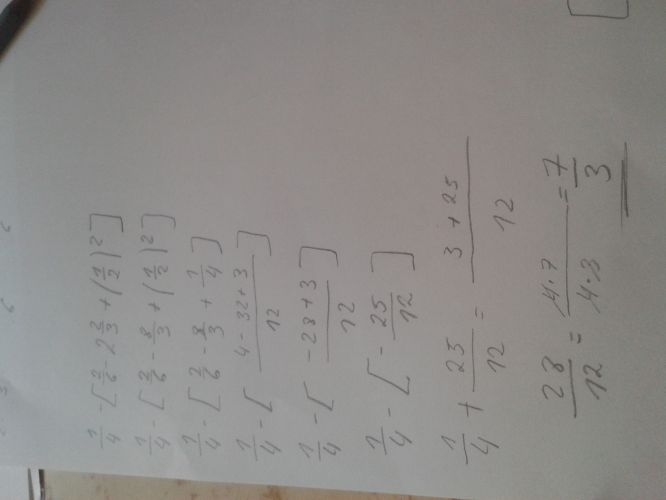 1/4 - [2/6 - 2 2/3 + (1/2)²]
1/4 - [2/6 - 8/3 + (1/2)²]
1/4 - [2/6 - 8/3 + 1/4]
1/4 - [(4 - 32 + 3)/12]
1/4 - [(-28 + 3)/12]
1/4 - [-25/12]
1/4 + 25/12 = (3 + 25)/12
28/12 = (4·7)/(4·3) = 7/3